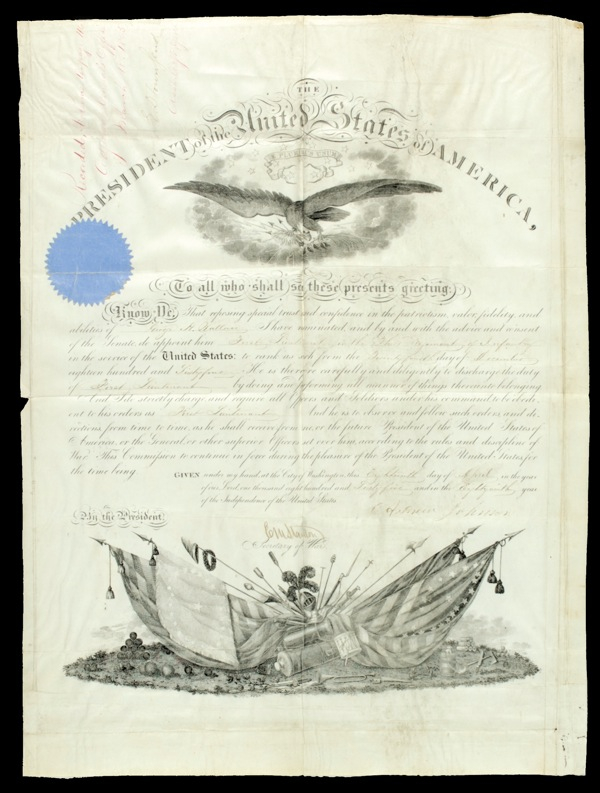 THE
PRESIDENT of the United States of AMERICA,
E PLURIBUS UNUM
To all who shall see these presents greeting:
Know Ye, That reposing special trust and confidence in the patriotism, valor, fidelity and
abilities of George I have nominated and by and with the advice and consent
of the Senate, do appoint him First Lieutenant in the Regiment of Infantry
in the service of the United States: to rank as such from the day of
eighteen hundred and He is therefore carefully and diligently to discharge the duty
of First Lieutenant by doing and performing all manner of things thereunto belonging.
And I do strictly charge and require all Officers and Soldiers under his command to be obedi-
ent to his orders as First Lieutenant And he is to observe and follow such orders, and di-
rections from time to time, as he shall receive from me, or the future President of the United States of
America, or the General or other superior Officers set over him, according to the rules and discipline of
War. This Commission to continue in force during the pleasure of the President of the United States for
the time being.
GIVEN under my hand, at the City of Washington, this Eighteenth day of April in the year
of our Lord, one thousand eight hundred and and in the year
of the Independence of the United States.
By the President
Andrew Johnson
Edwin M Stanton
Secretary of War.